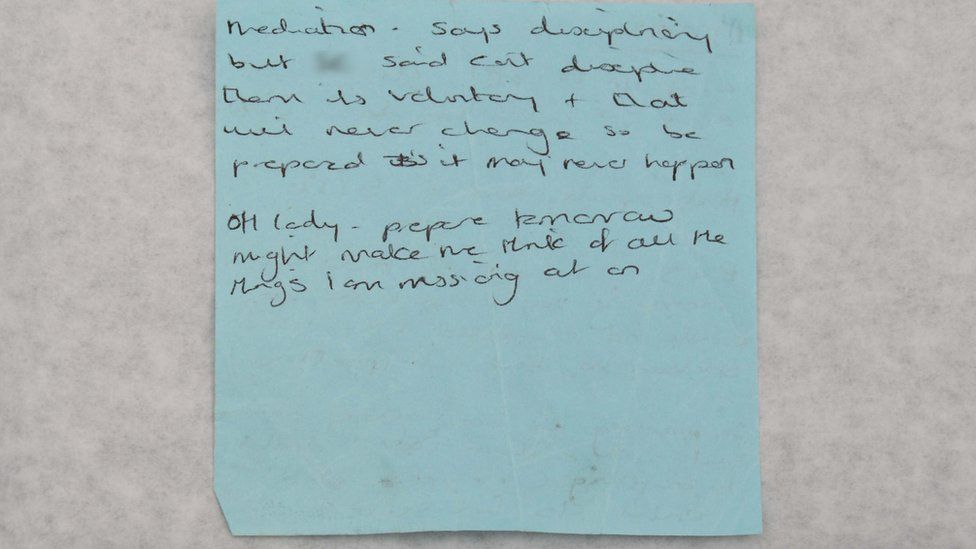 Mediation - says disciplinary
but said can't discipline
them its voluntary + that
will never change so be
prepared it may never happen
OH lady - prepare tomorrow
might make me think of all the
things I am missing at on